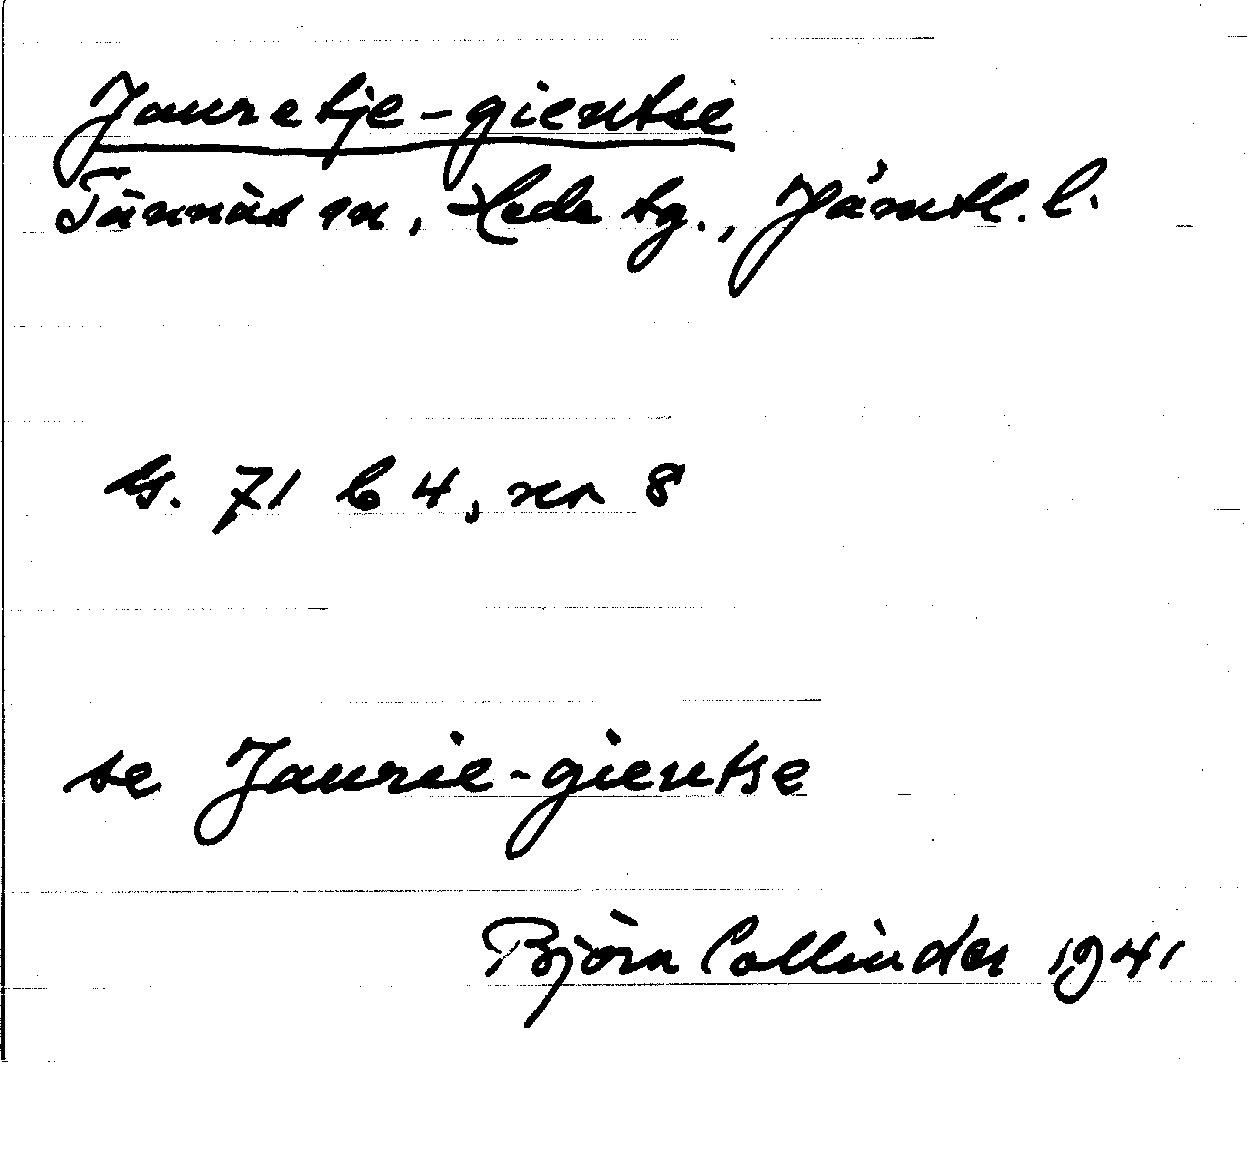 Jauretje-gientse
Tännäs sn, Hede tg., Jämtl. l.
G. 71 b 4, nr 8
se Jaurie-gientse
Björn Collinder 1941